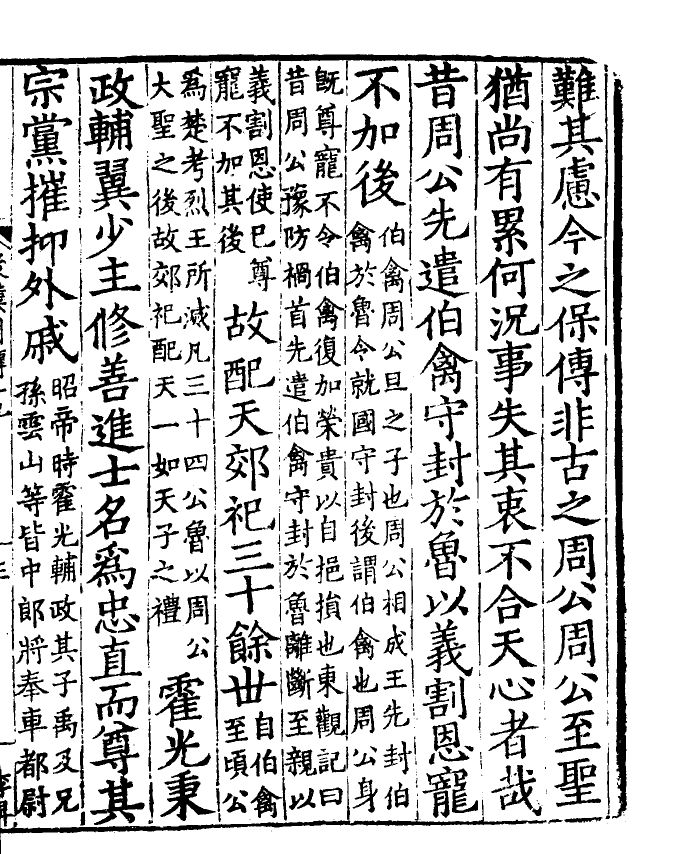 難其慮今之保傅非古之周公周公至聖
猶尚有累何況事失其衷不合天心者哉
昔周公先遣伯禽守封於魯以義割恩寵
不加後
伯禽周公旦之子也周公相成王先封伯
禽於魯令就國守封後謂伯禽也周公身
既尊寵不令伯禽復加榮貴以自挹損也東觀記曰
昔周公豫防禍首先遣伯禽守封於魯離斷至親以
義割恩使已尊
寵不加其後
故配天郊祀三十餘世
自伯禽
至頃公
為楚考烈王所滅凡三十四公魯以周公
大聖之後故郊祀配天一如天子之禮
霍光秉
政輔翼少主修善進士名為忠直而尊其
宗黨摧抑外戚
昭帝時霍光輔政其子禹及兄
孫雲山等皆中郎將奉車都尉